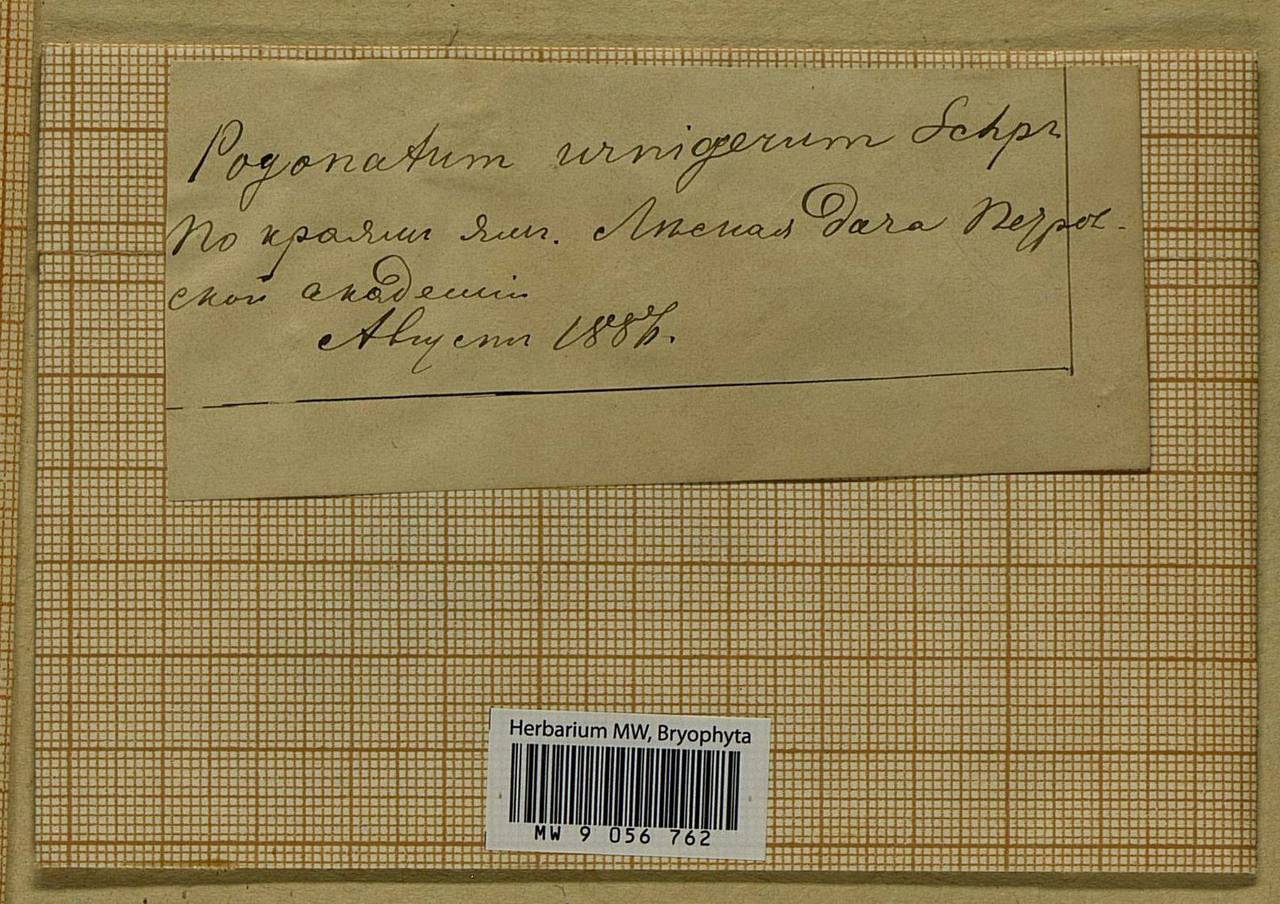 Pogonatum urnigerum Schpr
По краям ям. Лѣсная Дача Петров-
ской академіи
Августъ 188
Herbarium MW, Bryophyta
MW 9 056 762